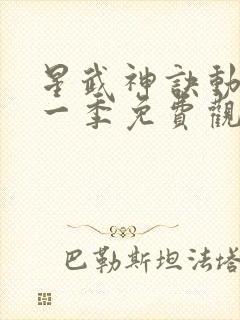 星武神訣動
一季免費觀
巴勒斯坦法塔